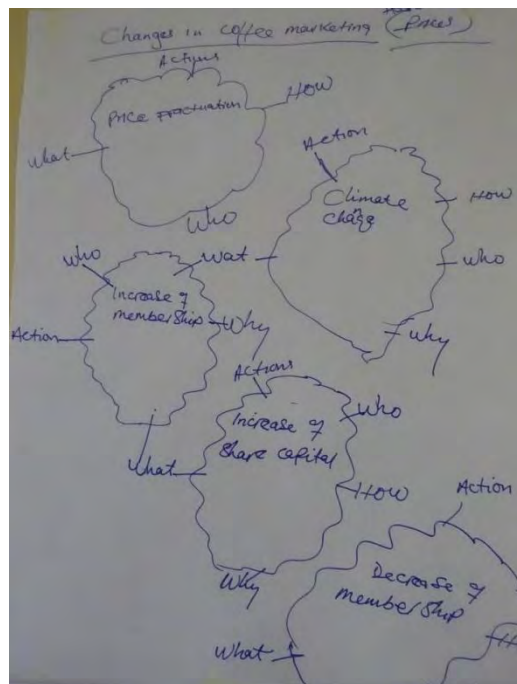 Changes in coffee marketing (Prices)
Actions
Price fluctuation
HOW
What
Who
Action
Climate
chage
HOW
who
why
Who
Wat
Increase of
membership
Why
Action
What
Actions
Who
Increase of
Share capital
HOW
Why
Action
Decrease of
membership
H
What